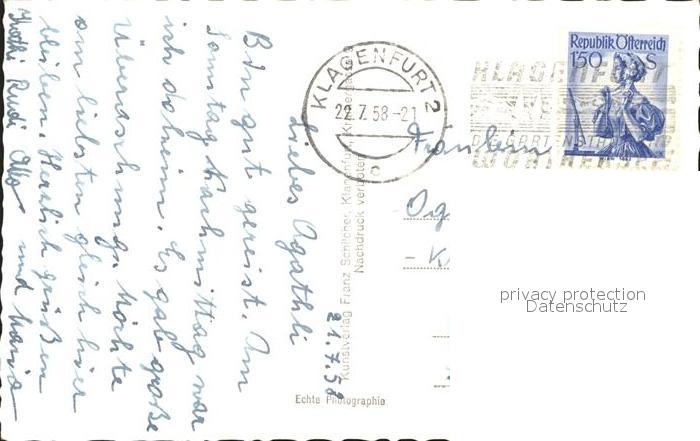 21.7.58
Liebes Agathli
Bin gut gereist. Am
Sonntag Nachmittag war
ich daheim. Es gab große
Überraschung. Möchte
am liebsten gleich hier
bleiben. Herzlich grüßen
Kathi Rudi Otto und Maria
Kunstverlag Franz Schilcher, Klagenfurt,
Nachdruck verboten
Echte Photographie
KLAGENFURT 2
22.7.58-21
c
Republik Österreich
1'50 S
KLAGENFURT
WÖRTHERSEE
Fräulein
privacy protection
Datenschutz